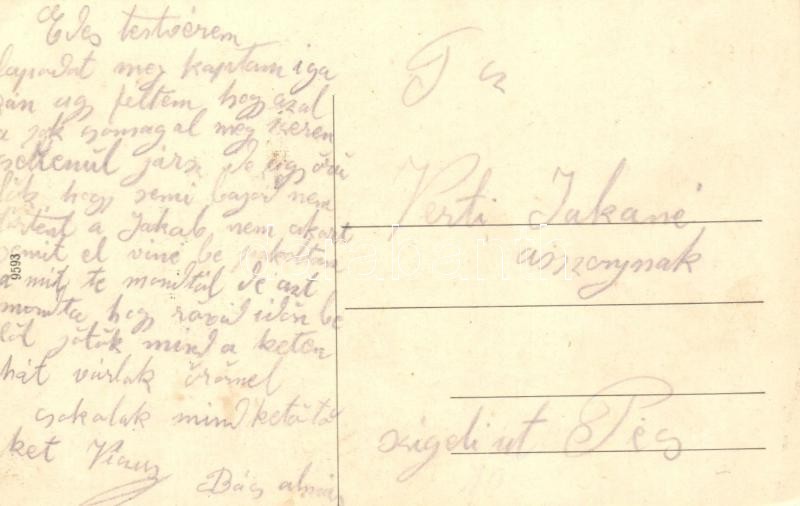 Edes testvérem
lapodat meg kaptam iga
zán ug feltem hogy azal
a sok csomagal meg szeren
csetlenül jársz de ug örü
lök hogy semi bajod nem
törtent a Jakab nem akart
semit el vine be pakoltam
a mit te montál de azt
monta hogy rövid idön be
löl jötök mind a keten
hát várlak örömel
csokolak mind ketötö
ket
Bács almás
9593
T cz
Verti Jakané
asszonynak
szigeti ut Pécs